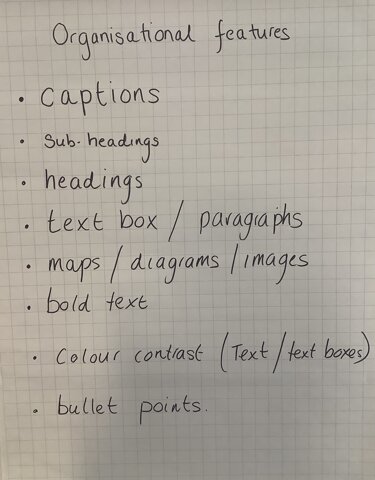 Organisational features
• Captions
• Sub-headings
• headings
• text box / paragraphs
• maps / diagrams / images
• bold text
• Colour contrast (Text / text boxes)
• bullet points.